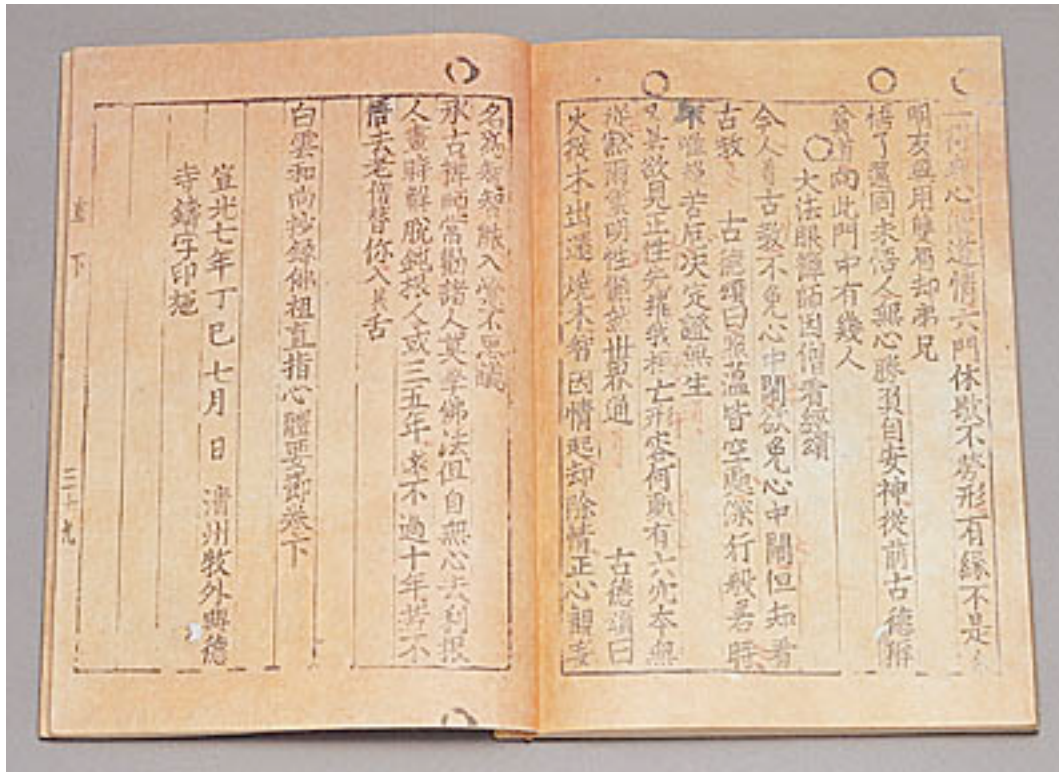 一得無心便道情六門休歇不勞形有緣不是余
朋友無用雙眉却弟兄
悟了還同未悟人無心勝負自安神從前古德稱
貧道向此門中有幾人
大法眼禪師因僧看經頌
今人看古教不免心中鬧欲免心中鬧但知看
古教 古德頌曰照蘊皆空 深行般若時
苦厄決定證無生
欲見正性先摧我相亡形容何處有六 本無
從 雨 明性 世界通 古德頌曰
火從木出還燒木智因情起却除情正心觀妄
名爲智智融入 不思議
古禪師常勸諸人莫學佛法但自無心去利根
人晝時解脫鈍根人或三五年遠不過十年若不
悟去老僧替你入拔舌
白雲和尙抄錄佛祖直指心體要節卷下
宣光七年丁巳七月 日 淸州牧外興德
寺鑄字印施
直下
三十九